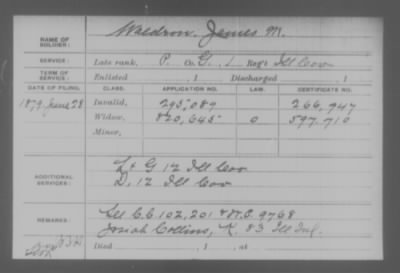 NAME OF SOLDIER: Waldron, James M.
SERVICE: Late rank, P. Co. G, 1 Reg't Ill Cav
TERM OF SERVICE: Enlisted , 1 Discharged , 1
DATE OF FILING. CLASS. APPLICATION NO. LAW. CERTIFICATE NO.
1879 June 28 Invalid, 295,089 266,947
Widow, 820,645 0 597,710
Minor,
ADDITIONAL SERVICES: L & G 12 Ill Cav
D, 12 Ill Cav
REMARKS: See C.C. 102,201 & W.C. 9768
Josiah Collins, K 83 Ill Inf.
Died , 1 , at